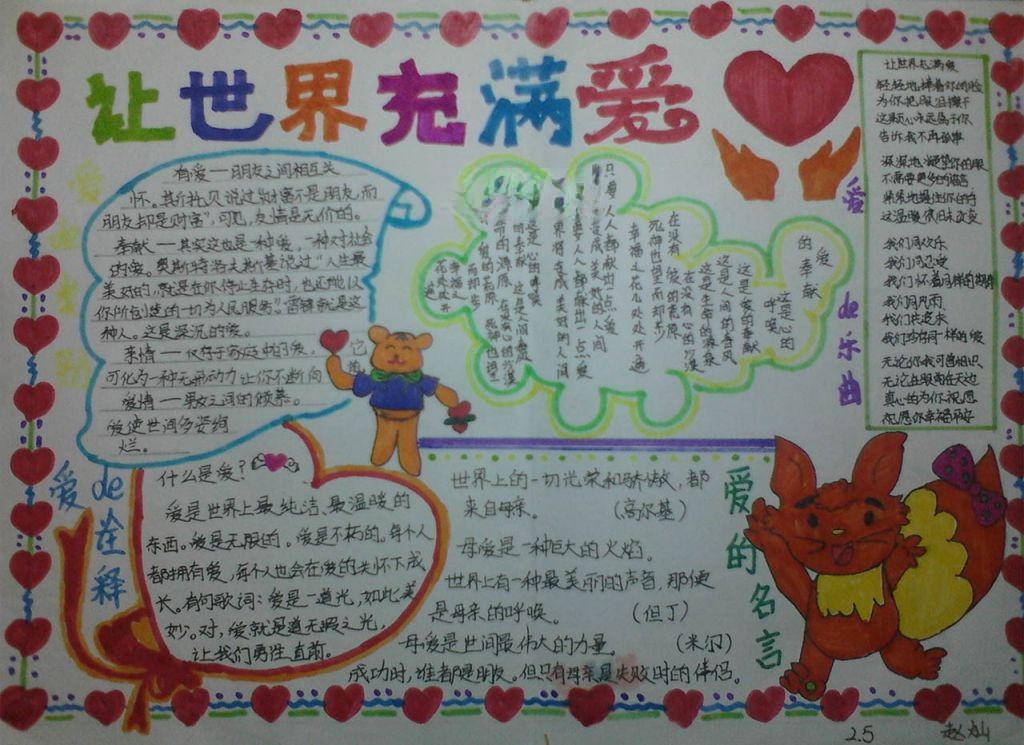 让世界充满爱
有爱一朋友之间相互关
怀。其价托贝说过"财富不是朋友,而
朋友却是财富",可见,友情是无价的。
奉献一其实这也是一种爱,一种对社会
的爱。奥斯特洛夫斯基说过"人生最
美好的,就是在你停止生存时,也还能以
你所创造的一切为人民服务"雷锋就是这
种人。这是深沉的爱。
亲情一仅存于家庭中的爱,它的
可化为一种无形动力让你不断向
爱情一男女之间的倾慕。
爱使世间多姿绚
烂。
爱的奉献
这是心的呼唤
这是爱的奉献
这是人间的春风
这是生命的源泉
在没有心的沙漠
在没有爱的荒原
死神也望而却步
幸福之花儿处处开遍
只要人人都献出一点爱
让世界充满爱
轻轻地捧着你的脸
为你把眼泪擦干
这颗心永远属于你
告诉我不再孤单
深深地凝望你的眼
不需要更多的语言
紧紧地握住你的手
这温暖依旧未改变
我们同欢乐
我们同忍受
我们怀着同样的期待
我们同风雨
我们共追求
我们珍存同一样的爱
无论你我可曾相识
无论在眼前在天边
真心的为你祝愿
祝愿你幸福平安
爱de乐曲
爱de在释
什么是爱?
爱是世界上最纯洁、最温暖的
东西。爱是无限的。爱是不朽的。每个人
都拥有爱,每个人也会在爱的关怀下成
长。有句歌词:爱是一道光,如此美
妙。对,爱就是道无暇之光,
让我们勇往直前。
世界上的一切光荣和骄傲,都
来自母亲。 (高尔基)
母爱是一种巨大的火焰。
世界上有一种最美丽的声音,那便
是母亲的呼唤。 (但丁)
母爱是世间最伟大的力量。 (米尔)
成功时,谁都是朋友。但只有母亲是失败时的伴侣。
爱的名言
2.5 赵灿